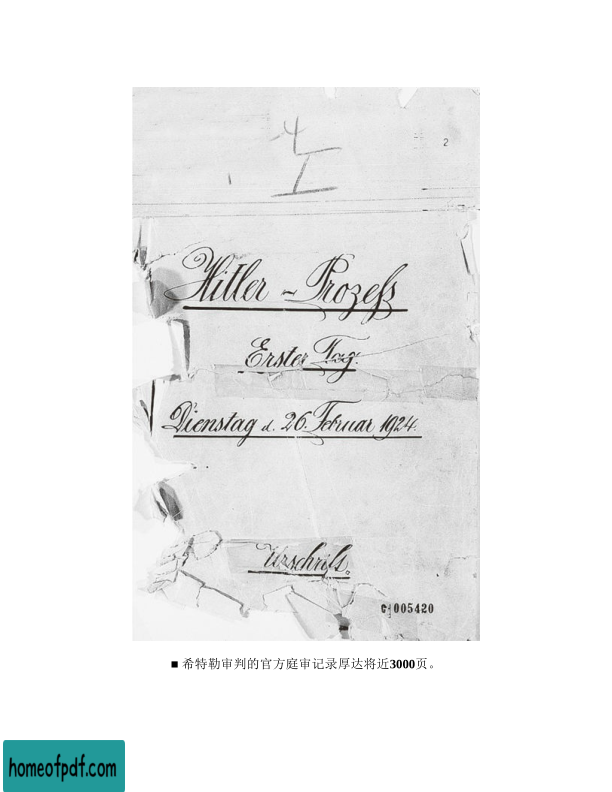 4
I
2
Hitler - Prozeß
Erster Tag.
Dienstag d. 26. Februar 1924.
Urschrift.
G 005420
■ 希特勒审判的官方庭审记录厚达将近3000页。
homeofpdf.com